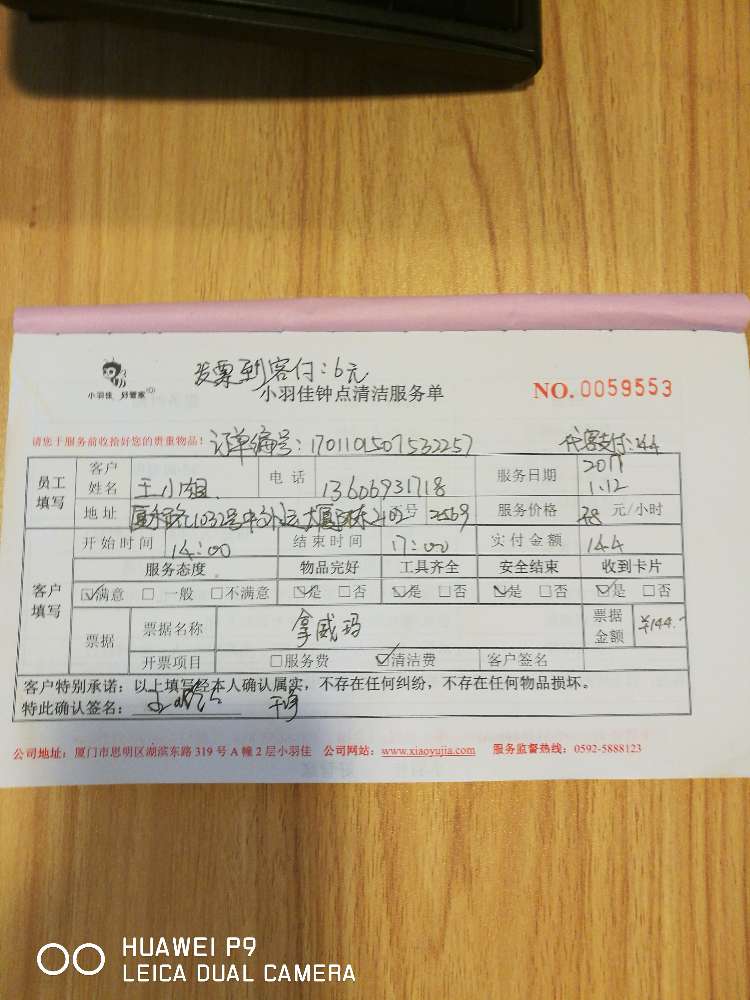 发票到客付:6元
小羽佳 好管家
小羽佳钟点清洁服务单
NO. 0059553
请您于服务前收拾好您的贵重物品!
订单编号:1701101507532257
代客支付:144
员工填写
客户姓名 王小姐
电话 13606931718
服务日期 2017 1.12
地址 1032号 大厦 2102 号
服务价格 48 元/小时
客户填写
开始时间 14:00 结束时间 17:00 实付金额 144
服务态度 物品完好 工具齐全 安全结束 收到卡片
☑满意 □一般 □不满意 ☑是 □否 ☑是 □否 ☑是 □否 ☑是 □否
票据
票据名称 拿威玛
票据金额 ¥144.-
开票项目 □服务费 ☑清洁费 客户签名
客户特别承诺:以上填写经本人确认属实,不存在任何纠纷,不存在任何物品损坏。
特此确认签名:
公司地址:厦门市思明区湖滨东路 319 号 A 幢 2 层小羽佳 公司网站:www.xiaoyujia.com 服务监督热线:0592-5888123
HUAWEI P9
LEICA DUAL CAMERA